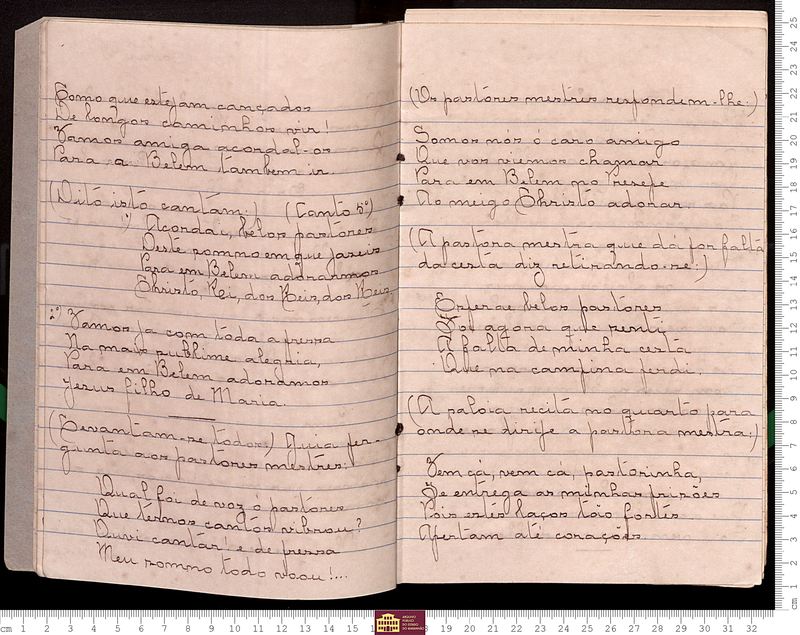 Como que estejam cançados
De longos caminhos vir!
Vamos amiga acordal-os
Para a Belem tambem ir.
(Dito isto cantam:) (Canto 5º)
1º) Acordai, belos pastores
Deste somno em que jazeis
Para em Belem adorarmos
Christo, Rei, dos Reis, dos Reis
2º) Vamos ja com toda a pressa
Na mais sublime alegria,
Para em Belem adoramos
Jesus filho de Maria.
(Levantam-se, todos.) Guia per-
gunta aos pastores mestres:
Qual foi de voz ó pastores
Que ternos cantos vibrou?
Ouvi cantar! e de pressa
Meu somno todo voou!...
(Os pastores mestres respondem-lhe:)
Somos nós ó caro amigo
Que vos viemos chamar
Para em Belem no Presepe
Ao meigo Christo adorar.
(A pastora mestra que dá por falta
da cesta diz retirando-se:)
Esperae belos pastores
Foi agora que senti
A falta de minha cesta
Que na campina perdi.
(A paloia recita no quarto para
onde se dirije a pastora mestra:)
Vem cá, vem cá, pastorinha,
Te entrega as minhas prisões
Pois estes laços tão fortes
Apertam até corações.
cm 1 2 3 4 5 6 7 8 9 10 11 12 13 14 15 18 19 20 21 22 23 24 25 26 27 28 29 30 31 32
cm 1 2 3 4 5 6 7 8 9 10 11 12 13 14 15 16 17 18 19 20 21 22 23 24 25
ARQUIVO
PÚBLICO
DO ESTADO
DO MARANHÃO